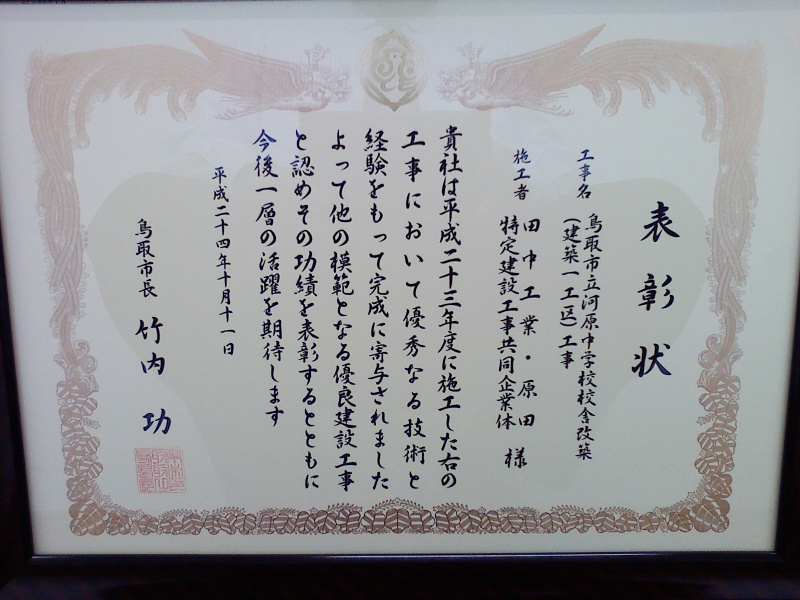 表彰状
工事名 鳥取市立河原中学校校舎改築
(建築一工区)工事
施工者 田中工業・原田
特定建設工事共同企業体 様
貴社は平成二十三年度に施工した右の
工事において優秀なる技術と
経験をもって完成に寄与されました
よって他の模範となる優良建設工事
と認めその功績を表彰するとともに
今後一層の活躍を期待します
平成二十四年十月十一日
鳥取市長 竹内 功